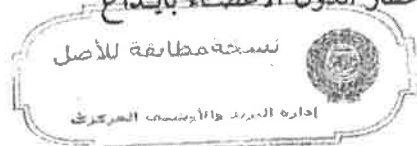 الدول الأعضاء بإيداع
نسخة مطابقة للأصل
إدارة البريد والأرشيف المركزي